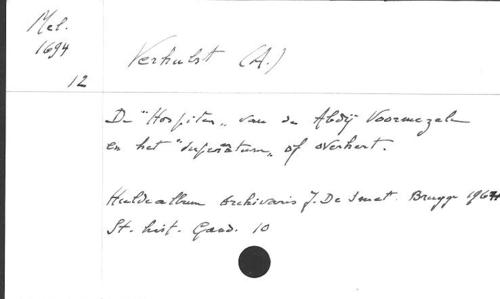 Mel.
1694
12
Verhulst (A.)
De "Hospites" van de Abdij Voormezele
en het "superatum" of overhert.
Huldealbum Archivaris J. De Smet. Brugge 1964
St. hist. Gand. 10